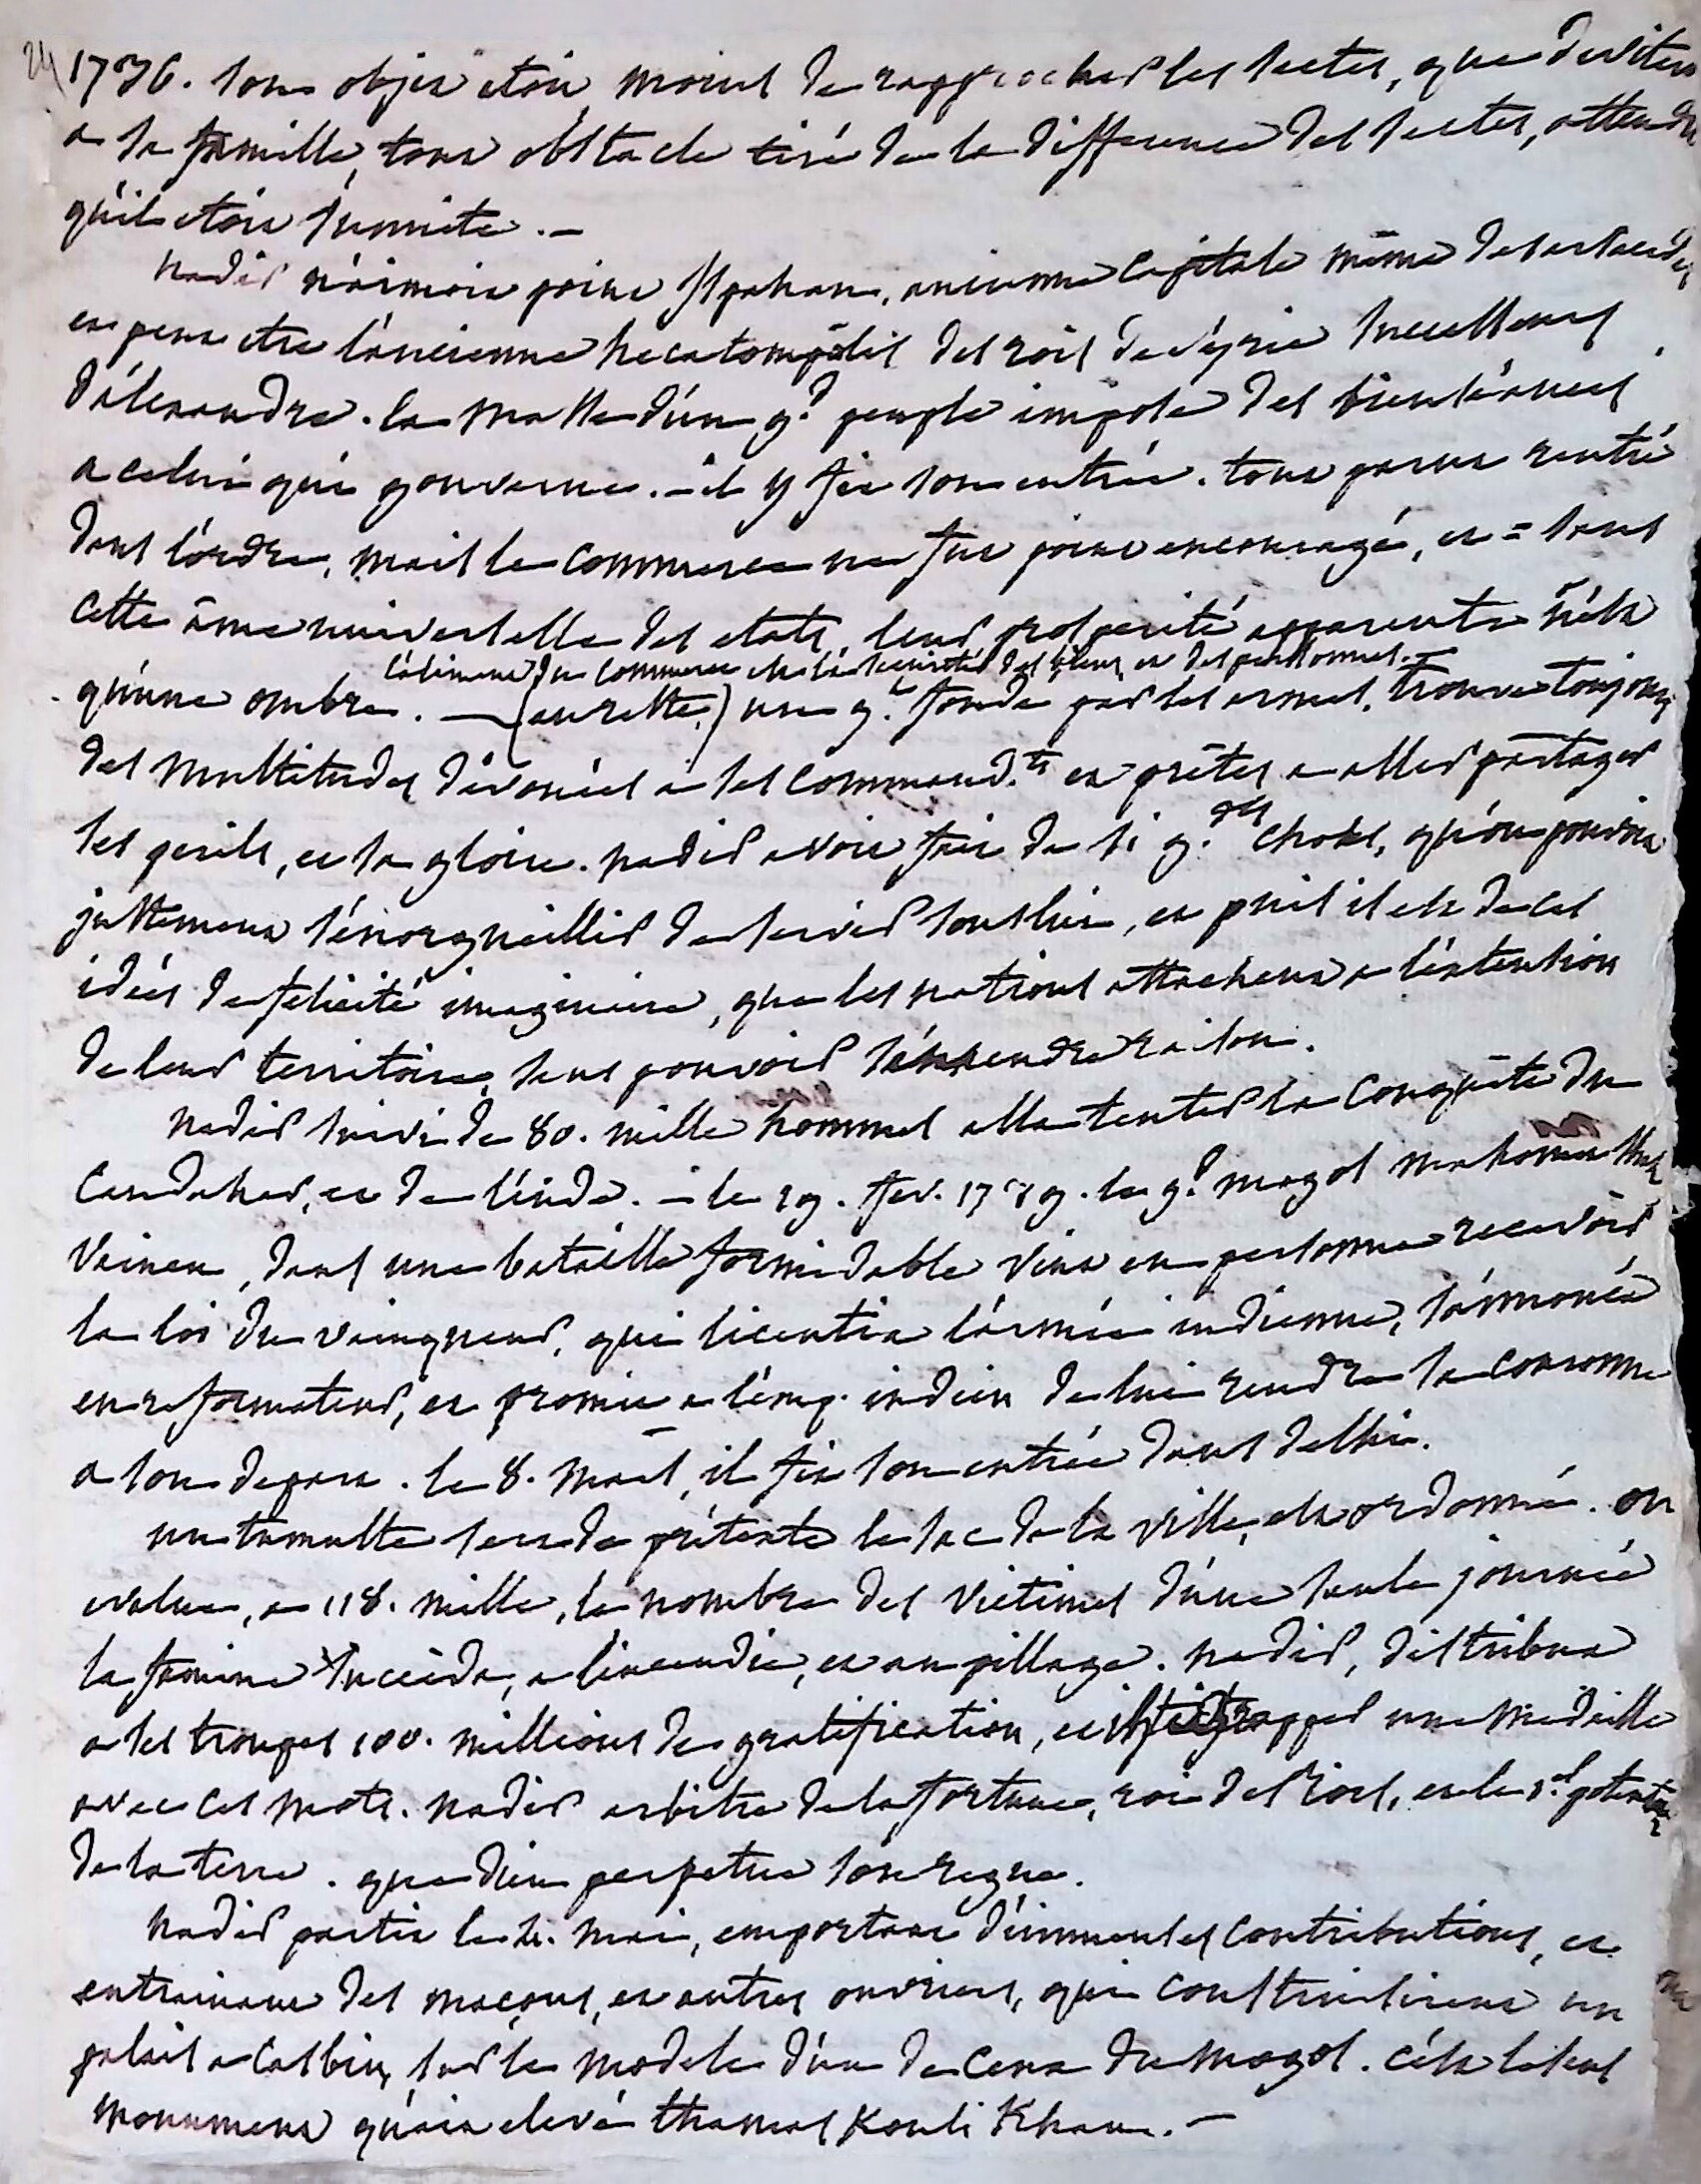 1736. son objet etoit moins de rapprocher les sectes, que d'eviter
a sa famille, tout obstacle tiré de la difference des sectes, attendu
qu'il etoit sunnite. —
nadir n'aimoit point Ispahan, ancienne capitale même des arsacides
et peut etre l'ancienne hecatompolis des rois de syrie successeurs
d'alexandre. la masse d'un gd peuple impose des bienséances
a celui qui gouverne. — il y fit son entrée. tout parut rentré
dans l'ordre, mais le commerce ne fut point encouragé, et = sans
cette âme universelle des etats, leur prosperité apparente n'est
l'aliment du commerce est la securité des biens et des personnes. —
qu'une ombre. — (au reste,) un g. fondé par les armes, trouve toujours
des multitudes dévouées a ses command.ts et prêtes a aller partager
ses perils, et sa gloire. nadir avoit fait de si g.des choses, qu'on pouvoit
justement s'énorgueillir de servir sous lui, et puis il est de ces
idées de felicité imaginaire, que les nations attachent a l'extension
de leur territoire, sans pouvoir s'en rendre raison.
nadir suivi de 80. mille hommes alla tenter la conquête du
Candahar, et de l'inde. — le 19. fev. 1739. le gd mogol mahomet shah
vaincu, dans une bataille formidable vint en personne recevoir
la loi du vainqueur, qui licentia l'armée indienne, s'annonça
en reformateur, et promit a l'emp. indien de lui rendre sa couronne
a son depart. le 8. mars, il fit son entrée dans delhi.
un tumulte sert de prétexte le sac de la ville, est ordonné. on
evalue, a 118. mille, le nombre des victimes d'une seule journée
la famine succéda, a l'incendie, et au pillage. nadir, distribua
a ses troupes 100. millions de gratification, et fit frapper une médaille
avec ces mots. nadir arbitre de la fortune, roi des rois, est le s.el potentat
de la terre. que dieu perpetue son regne.
nadir partit le mai, emportant d'immenses contributions, et
entrainant des maçons, et autres ouvriers, qui construisirent un
palais a Casbin, sur le modele d'un de ceux du mogol. c'est le seul
monument qu'ait elevé thamas Kouli Khan. —